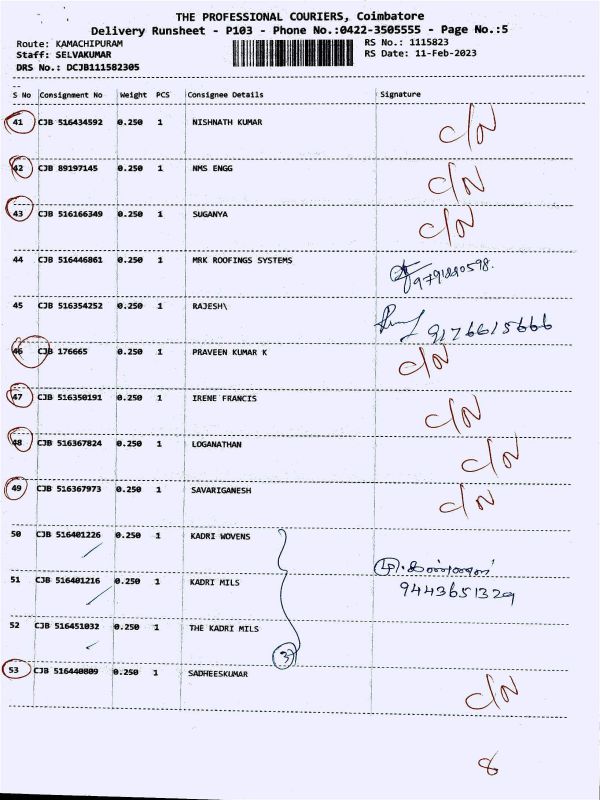 THE PROFESSIONAL COURIERS, Coimbatore
Delivery Runsheet - P103 - Phone No.:0422-3505555 - Page No.:5
Route: KAMACHIPURAM RS No.: 1115823
Staff: SELVAKUMAR RS Date: 11-Feb-2023
DRS No.: DCJB111582305
S No Consignment No Weight PCS Consignee Details Signature
41 CJB 516434592 0.250 1 NISHNATH KUMAR C/N
42 CJB 89197145 0.250 1 NMS ENGG C/N
43 CJB 516166349 0.250 1 SUGANYA C/N
44 CJB 516446861 0.250 1 MRK ROOFINGS SYSTEMS
45 CJB 516354252 0.250 1 RAJESH\ 9176615666
46 CJB 176665 0.250 1 PRAVEEN KUMAR K C/N
47 CJB 516350191 0.250 1 IRENE FRANCIS C/N
48 CJB 516367824 0.250 1 LOGANATHAN C/N
49 CJB 516367973 0.250 1 SAVARIGANESH C/N
50 CJB 516401226 0.250 1 KADRI WOVENS
51 CJB 516401216 0.250 1 KADRI MILS 9443651329
52 CJB 516451032 0.250 1 THE KADRI MILS
3
53 CJB 516440809 0.250 1 SADHEESKUMAR C/N
8